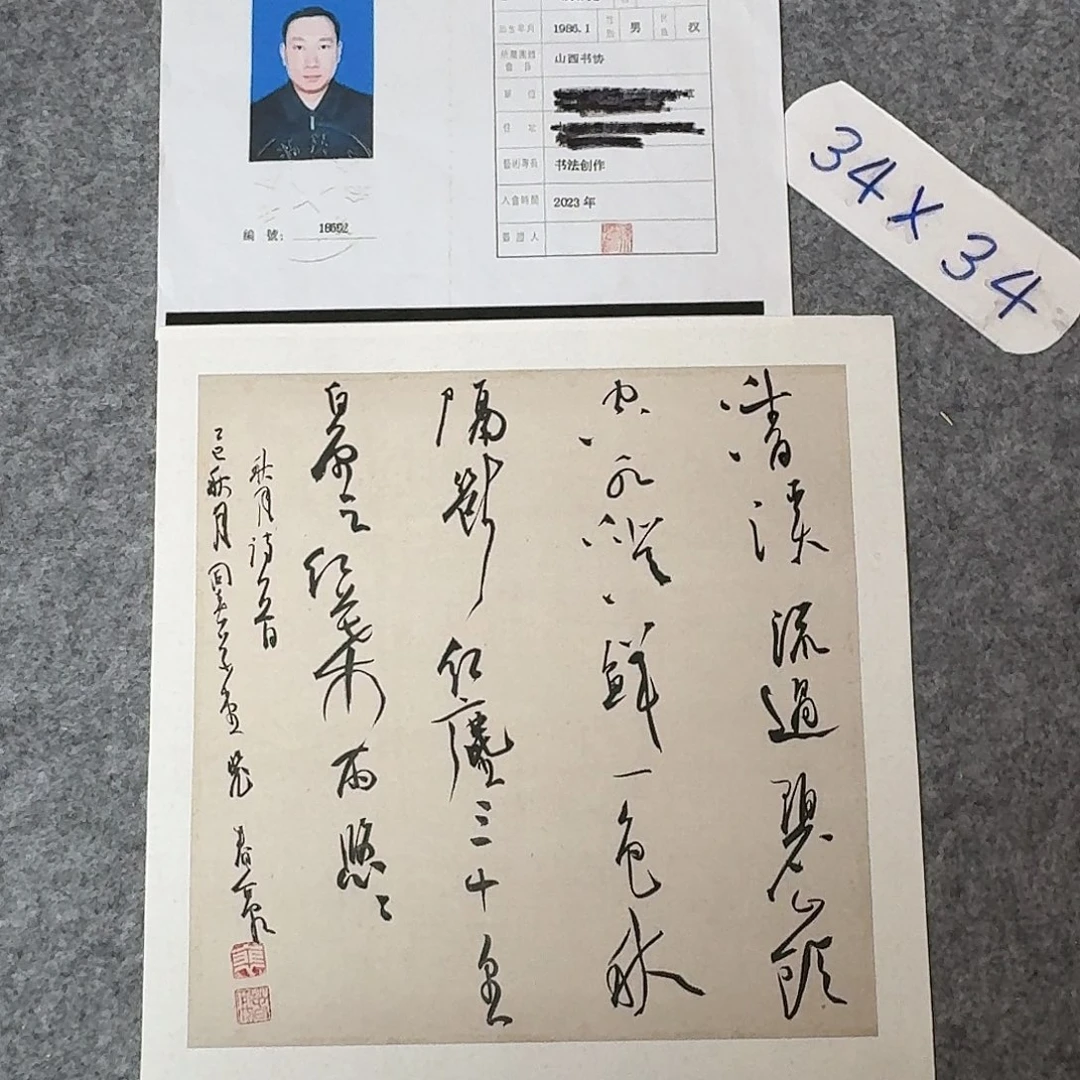 出生年月 1986.1 性别 男 民族 汉
所屬團體會員 山西书协
單位
住址
藝術專長 书法创作
入會時間 2023 年
簽證人
編號: 18692
34 X 34
清溪流過碧山頭
空水澄鮮一色秋
隔斷紅塵三十里
白雲紅葉兩悠〻
秋月诗一首
乙巳秋月